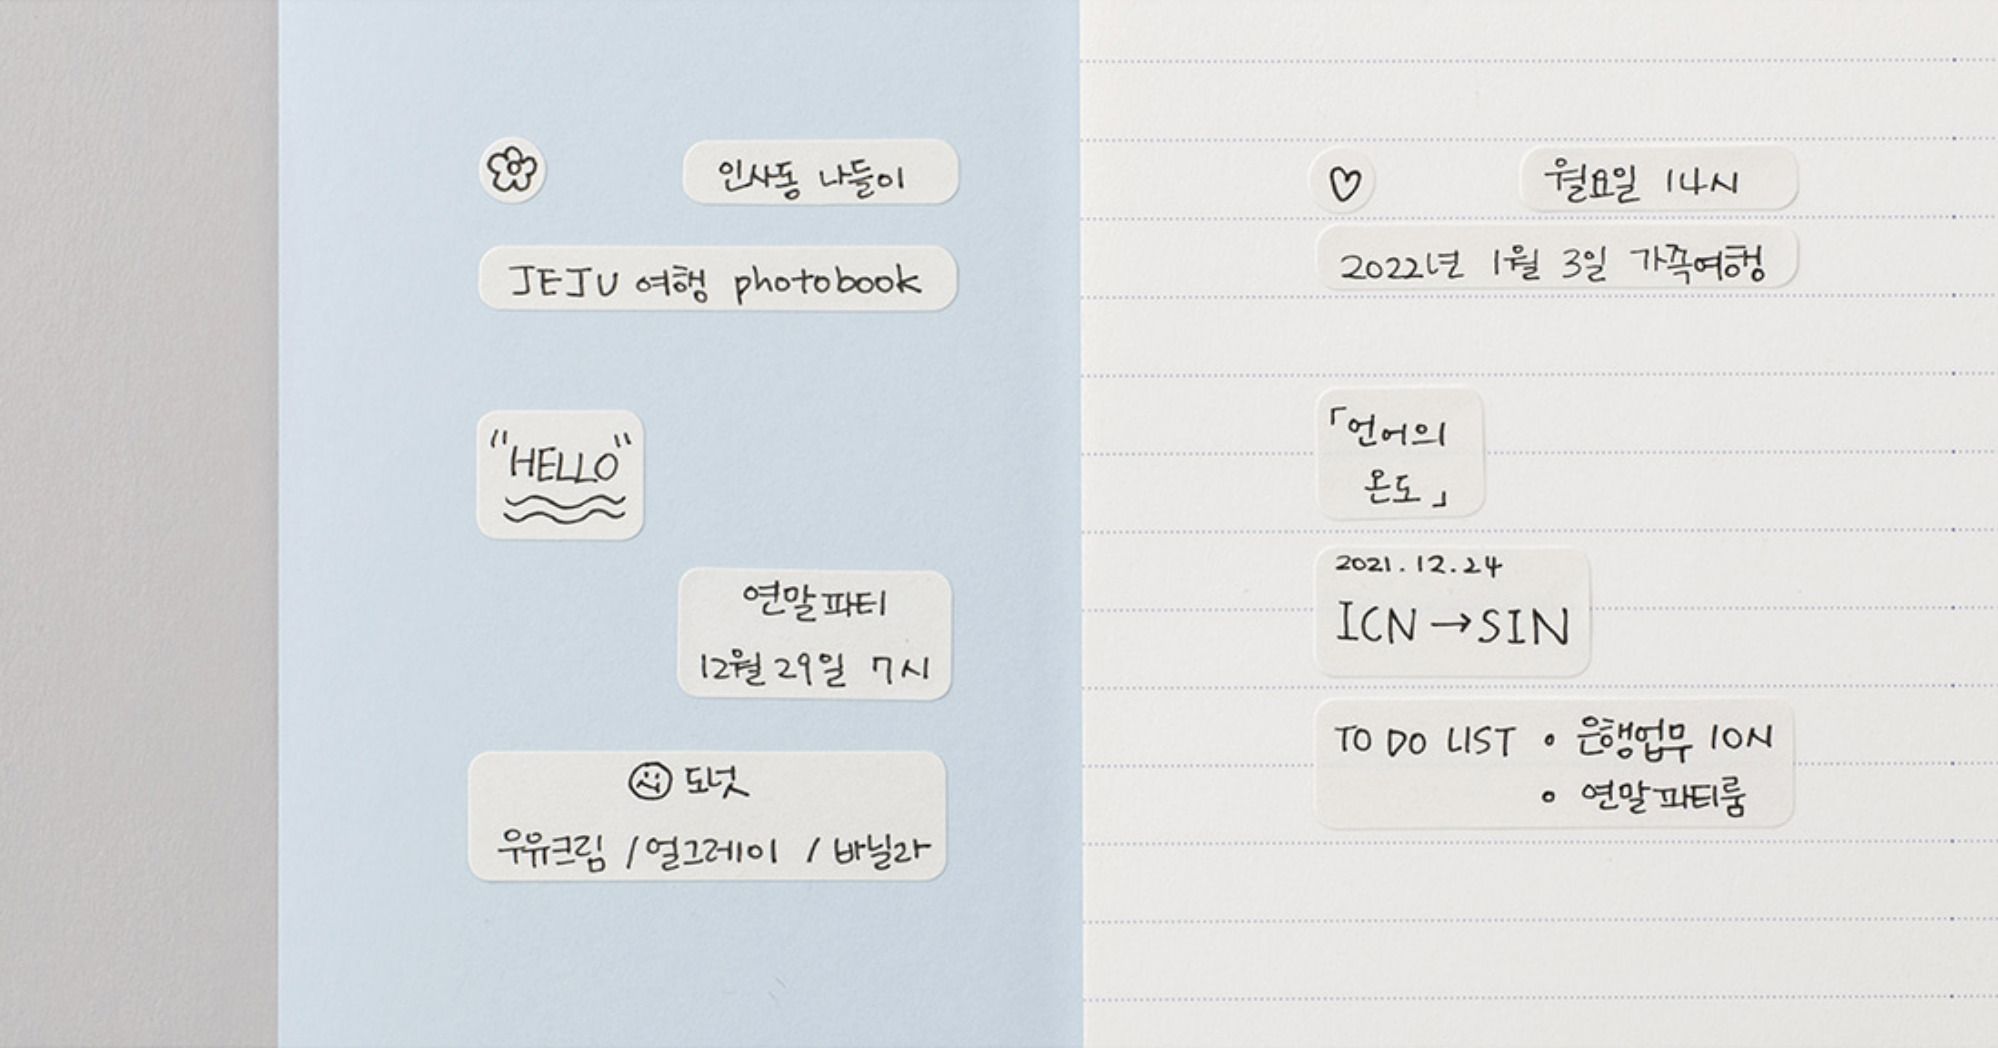 인사동 나들이
JEJU 여행 photobook
"HELLO"
연말파티
12월 29일 7시
도넛
우유크림 / 얼그레이 / 바닐라
월요일 14시
2022년 1월 3일 가족여행
「언어의
온도」
2021.12.24
ICN → SIN
TO DO LIST • 은행업무 10시
• 연말파티룸